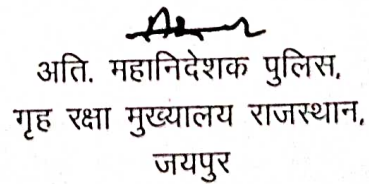 अति. महानिदेशक पुलिस,
गृह रक्षा मुख्यालय राजस्थान,
जयपुर